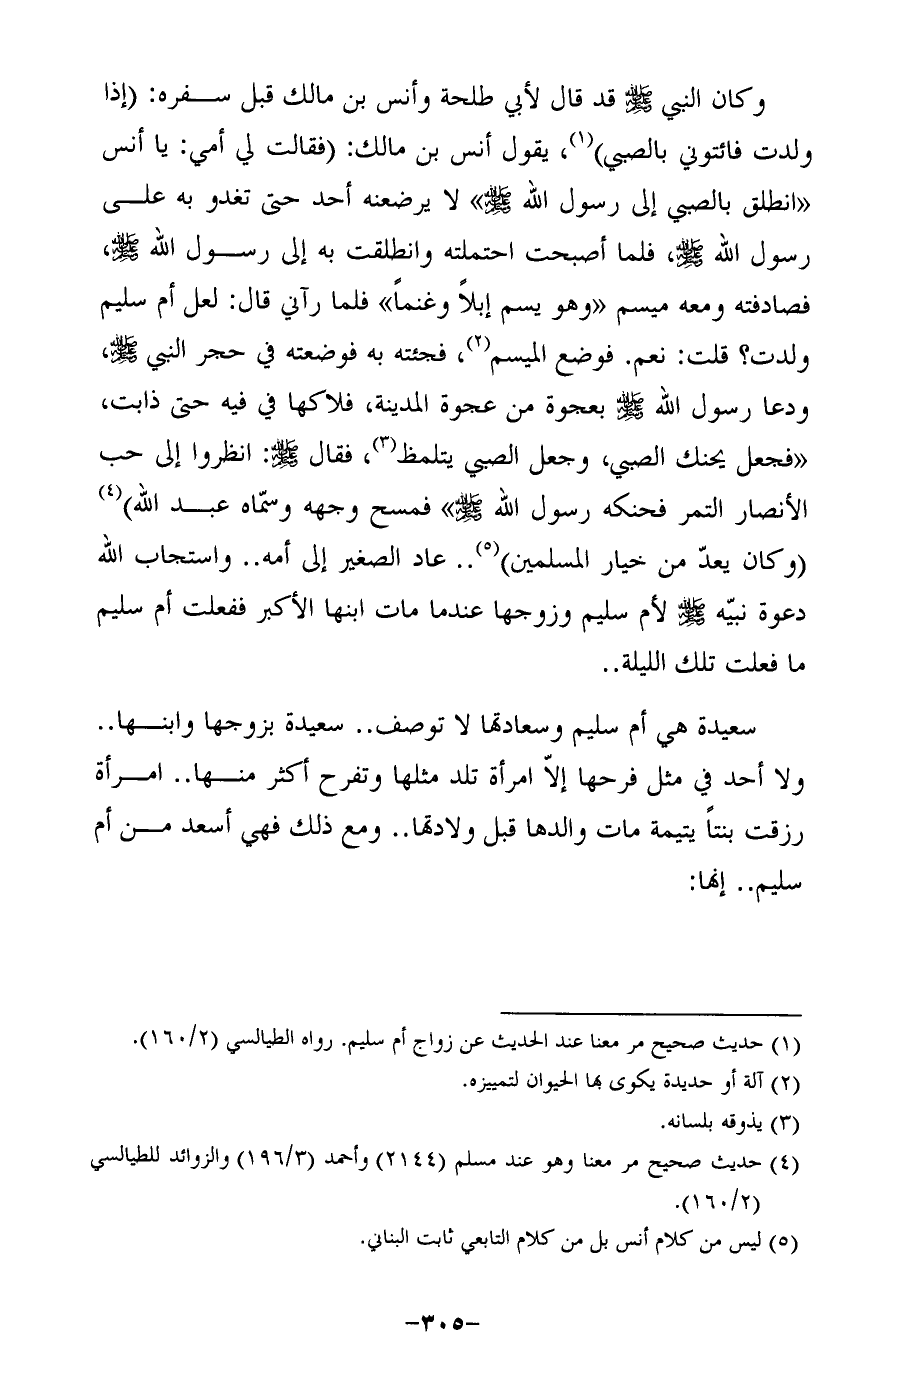 وكان النبي ﷺ قد قال لأبي طلحة وأنس بن مالك قبل سفره: (إذا
ولدت فائتوني بالصبي)(١)، يقول أنس بن مالك: (فقالت لي أمي: يا أنس
«انطلق بالصبي إلى رسول الله ﷺ» لا يرضعنه أحد حتى تغدو به على
رسول الله ﷺ، فلما أصبحت احتملته وانطلقت به إلى رسول الله ﷺ،
فصادفته ومعه ميسم «وهو يسم إبلاً وغنماً» فلما رآني قال: لعل أم سليم
ولدت؟ قلت: نعم. فوضع الميسم(٢)، فجئته به فوضعته في حجر النبي ﷺ
ودعا رسول الله ﷺ بعجوة من عجوة المدينة، فلاكها في فيه حتى ذابت،
«فجعل يحنك الصبي، وجعل الصبي يتلمظ(٣)، فقال ﷺ: انظروا إلى حب
الأنصار التمر فحنكه رسول الله ﷺ» فمسح وجهه وسمّاه عبد الله)(٤)
(وكان يعدّ من خيار المسلمين)(٥).. عاد الصغير إلى أمه.. واستجاب الله
دعوة نبيّه ﷺ لأم سليم وزوجها عندما مات ابنها الأكبر ففعلت أم سليم
ما فعلت تلك الليلة..
سعيدة هي أم سليم وسعادتها لا توصف.. سعيدة بزوجها وابنها..
ولا أحد في مثل فرحها إلاّ امرأة تلد مثلها وتفرح أكثر منها.. امرأة
رزقت بنتاً يتيمة مات والدها قبل ولادتها.. ومع ذلك فهي أسعد من أم
سليم.. إنها:
(١) حديث صحيح مر معنا عند الحديث عن زواج أم سليم. رواه الطيالسي (١٦٠/٢).
(٢) آلة أو حديدة يكوى بها الحيوان لتمييزه.
(٣) يذوقه بلسانه.
(٤) حديث صحيح مر معنا وهو عند مسلم (٢١٤٤) وأحمد (١٩٦/٣) والزوائد للطيالسي
(١٦٠/٢).
(٥) ليس من كلام أنس بل من كلام التابعي ثابت البناني.
-٣٠٥-